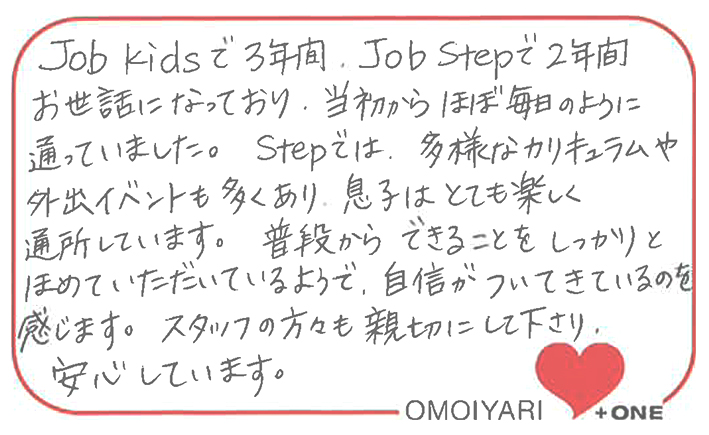 Job Kidsで3年間、Job Stepで2年間
お世話になっており、当初からほぼ毎日のように
通っていました。 Stepでは、多様なカリキュラムや
外出イベントも多くあり、息子はとても楽しく
通所しています。 普段から できることを しっかりと
ほめていただいているようで、自信がついてきているのを
感じます。 スタッフの方々も親切にして下さり、
安心しています。
OMOIYARI +ONE